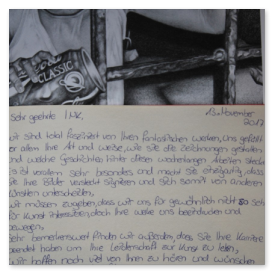 CLASSIC
Sehr geehrte INK, November
wir sind total fasziniert von Ihren fantastischen Werken, uns gefällt
vor allem Ihre Art und Weise, wie Sie die Zeichnungen gestalten
und welche Geschichte hinter diesen Arbeiten
ist vor allem sehr besonders und macht Sie einzigartig, dass
Sie Ihre Bilder versteckt signieren und sich somit von anderen
Künstlern unterscheiden.
wir müssen zugeben, dass wir uns für gewöhnlich nicht so sehr
für Kunst interessieren, doch Ihre Werke uns beeindrucken und
bewegen.
Sehr bemerkenswert finden wir außerdem, dass Sie Ihre Karriere
beendet haben um Ihre Leidenschaft zur Kunst zu leben,
wir hoffen noch viel von Ihnen zu hören und wünschen